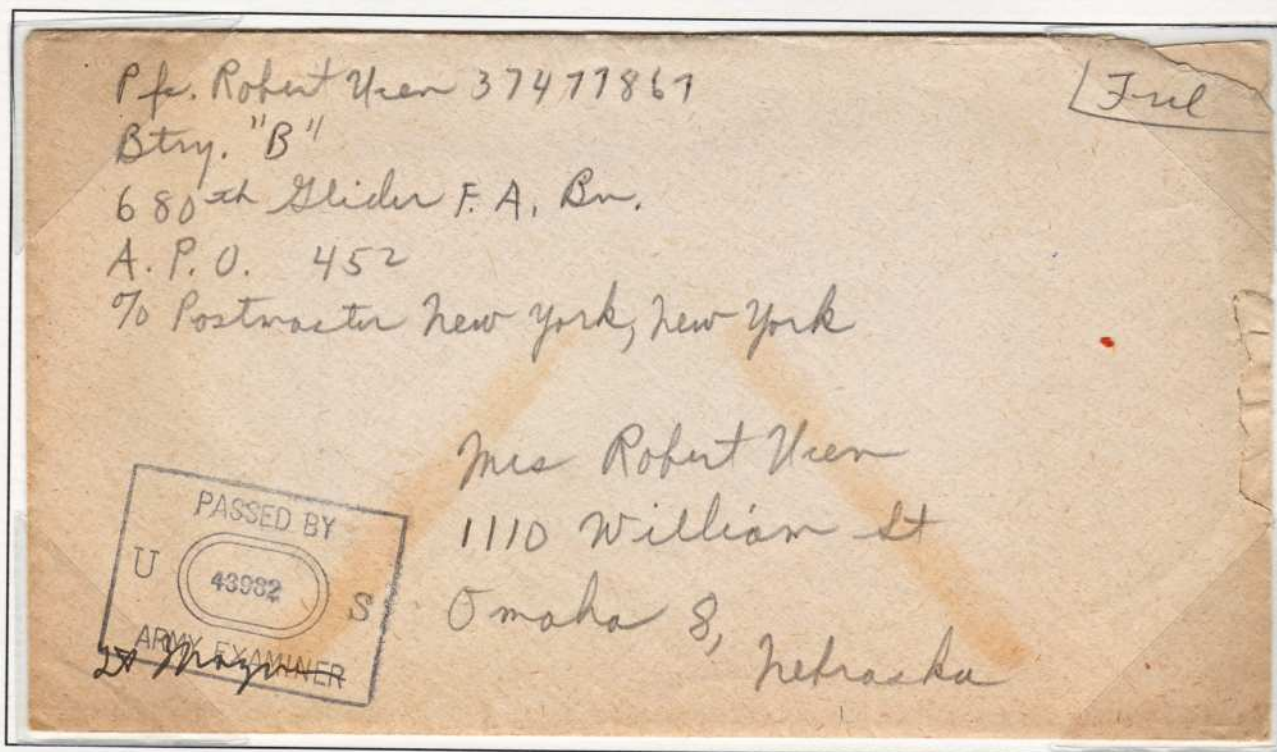 Pfc. Robert Uren 37477867
Btry. "B"
680th Glider F.A. Bn.
A.P.O. 452
% Postmaster New York, New York
Mrs Robert Uren
1110 William St
Omaha 8,
Nebraska
PASSED BY
U 43982 S
ARMY EXAMINER